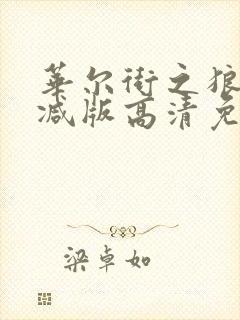 华尔街之狼
减版高清免
梁卓如